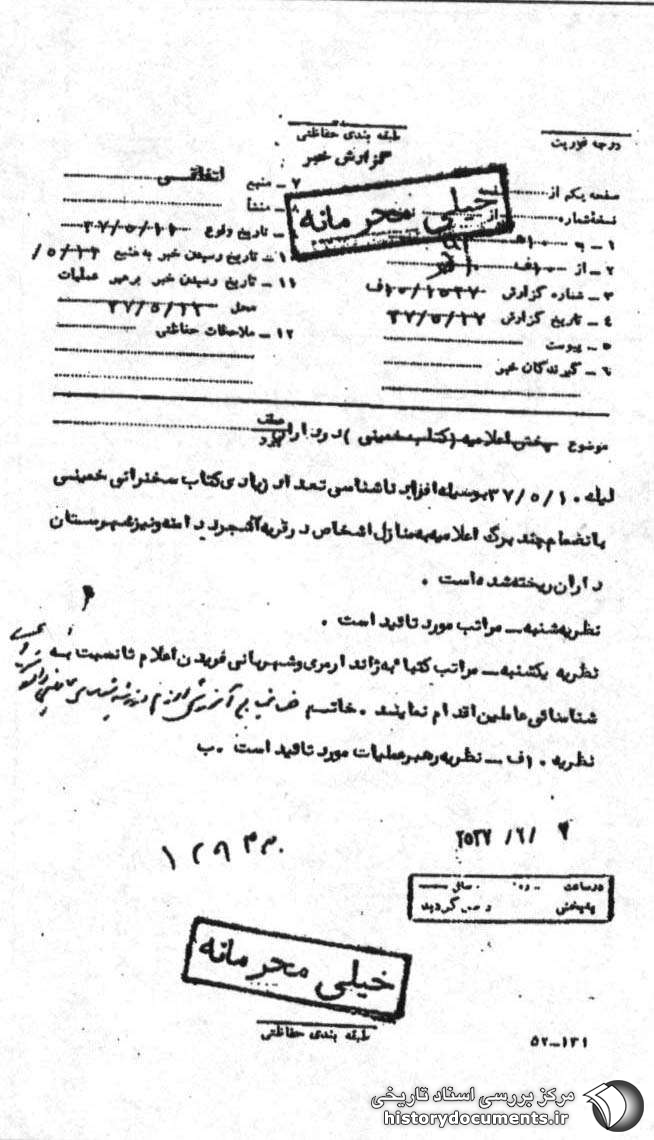 طبقه بندی حفاظتی
درجه فوریت
گزارش خبر
خیلی محرمانه
صفحه یکم از
نسخه شماره از
۱ ـ به ۱۰هـ
۲ ـ از ۱۰ف
۳ ـ شماره گزارش ۱۰/۱۵۳۷ف
۴ ـ تاریخ گزارش ۳۷/۵/۱۷
۵ ـ پیوست
۶ ـ گیرندگان خبر
۷ ـ منبع اتفاقی
۸ ـ منشأ
۹ ـ تاریخ وقوع ۳۷/۵/۱۱
۱۰ ـ تاریخ رسیدن خبر به منبع
۱۱ ـ تاریخ رسیدن خبر برهبر عملیات
محل ۳۷/۵/۱۲
۱۲ ـ ملاحظات حفاظتی
موضوع پخش اعلامیه (کتاب خمینی) در داران
لیله ۳۷/۵/۱۰ بوسیله افراد ناشناسی تعداد زیادی کتاب سخنرانی خمینی
بانضمام چند برگ اعلامیه به منازل اشخاص در قریه آشجرد دامنه و نیز شهرستان
داران ریخته شده است .
نظریه شنبه ـ مراتب مورد تائید است .
نظریه یکشنبه ـ مراتب کتبا به ژاندارمری و شهربانی فریدن اعلام تا نسبت به
شناسائی عاملین اقدام نمایند . خاتم
نظریه ۱۰ف ـ نظریه رهبر عملیات مورد تائید است . ب
۲۵۳۷/۶/۷
در ساعت روز سال
به پخش گردید
خیلی محرمانه
طبقه بندی حفاظتی
۵۲-۱۳۱
مرکز بررسی اسناد تاریخی
historydocuments.ir